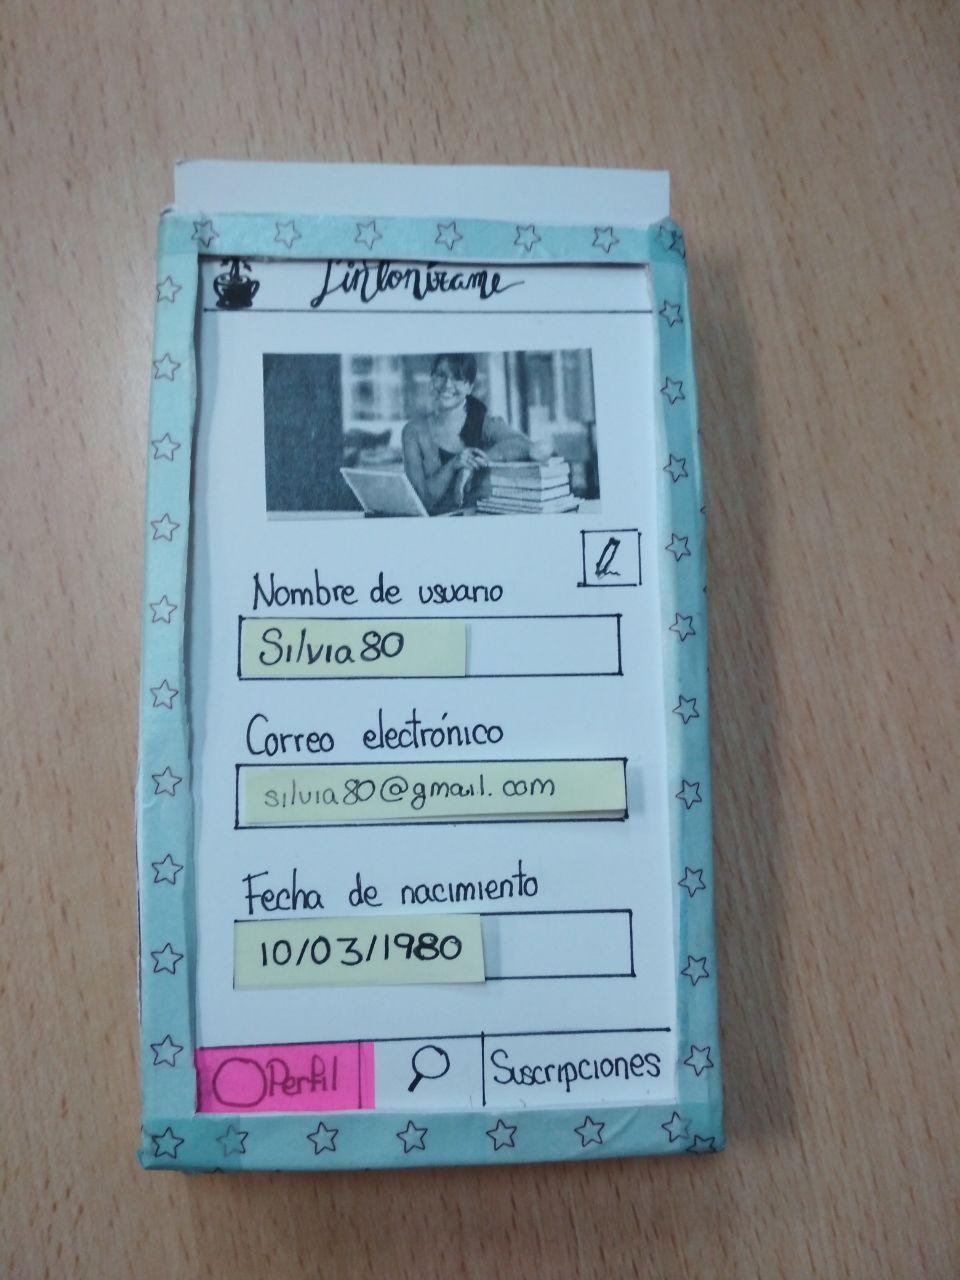 Sintonízame
Nombre de usuario
Silvia80
Correo electrónico
silvia80@gmail.com
Fecha de nacimiento
10/03/1980
Perfil
Suscripciones